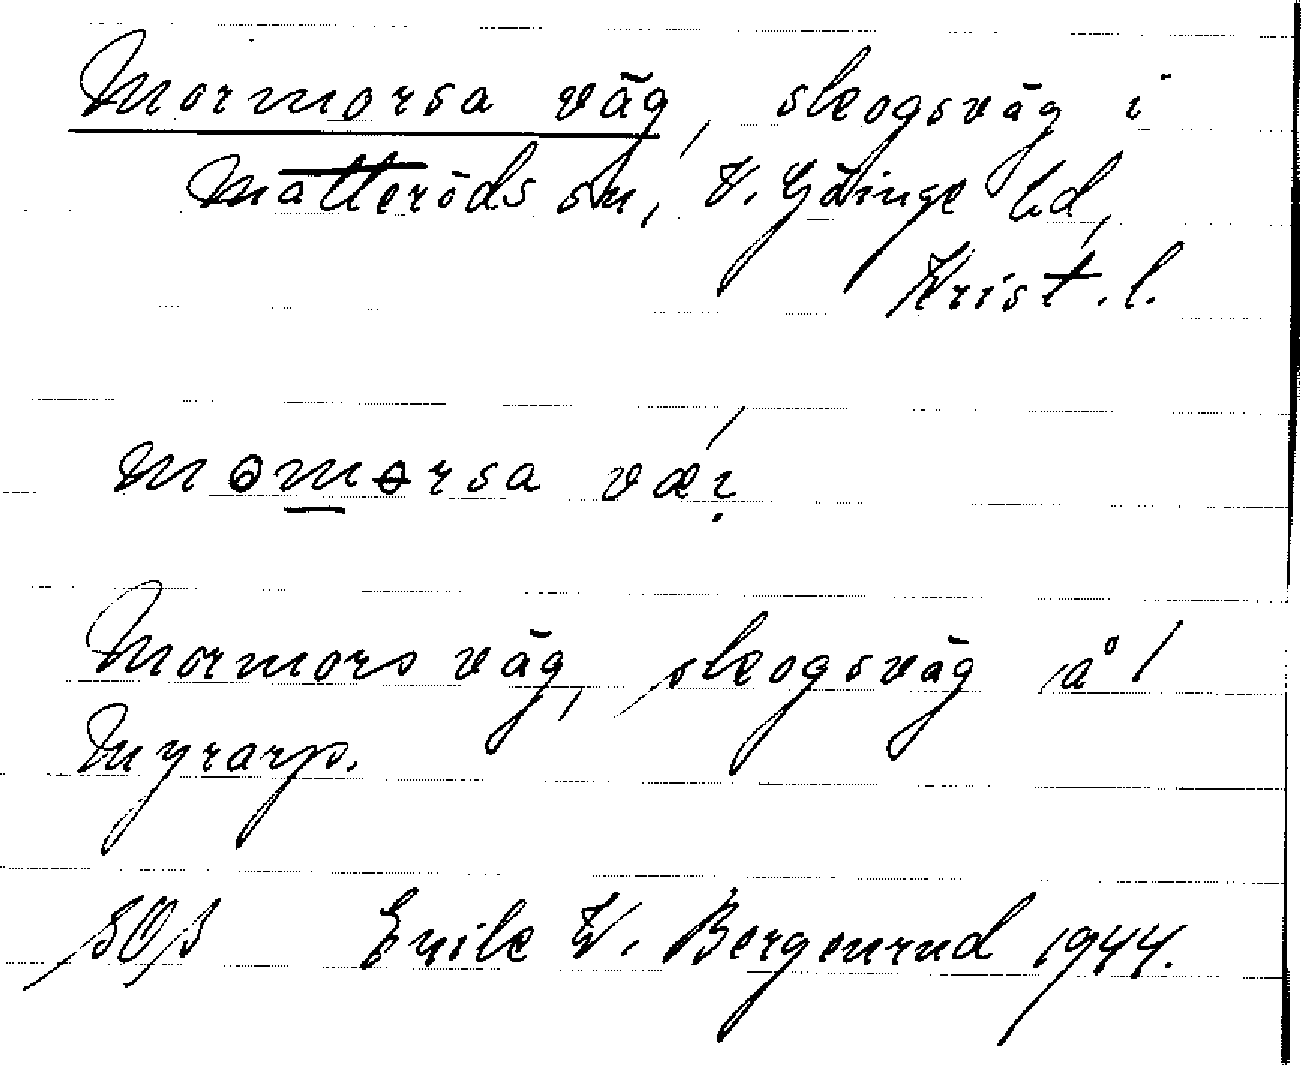 Mormorsa väg, skogsväg i
Matteröds sn, V. Göinge hd,
Krist. l.
mɵmɵrsa væ'ı̣
Mormors väg, skogsväg å 1
Myrarp.
Erik W. Bergenrud 1944.